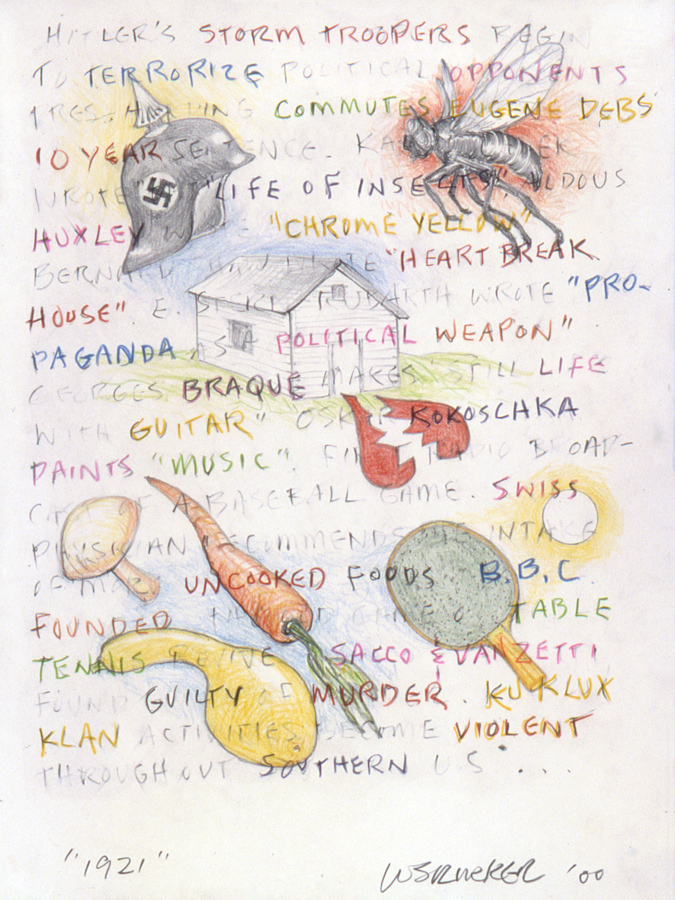 HITLER'S STORM TROOPERS BEGIN
TO TERRORIZE POLITICAL OPPONENTS
PRES. HARDING COMMUTES EUGENE DEBS'
10 YEAR SENTENCE.
WROTE "LIFE OF INSECTS", ALDOUS
HUXLEY WROTE "CHROME YELLOW"
BERNARD SHAW WROTE "HEART BREAK
HOUSE". E. RUBARTH WROTE "PRO-
PAGANDA AS A POLITICAL WEAPON"
GEORGES BRAQUE MAKES "STILL LIFE
WITH GUITAR" OSKAR KOKOSCHKA
PAINTS "MUSIC". FIRST RADIO BROAD-
CAST OF A BASEBALL GAME. SWISS
PHYSICIAN RECOMMENDS THE INTAKE
OF MORE UNCOOKED FOODS B.B.C.
FOUNDED. OLD GAME OF TABLE
TENNIS REVIVED. SACCO & VANZETTI
FOUND GUILTY OF MURDER. KU KLUX
KLAN ACTIVITIES BECOME VIOLENT
THROUGHOUT SOUTHERN U.S. ...
"1921"
'00